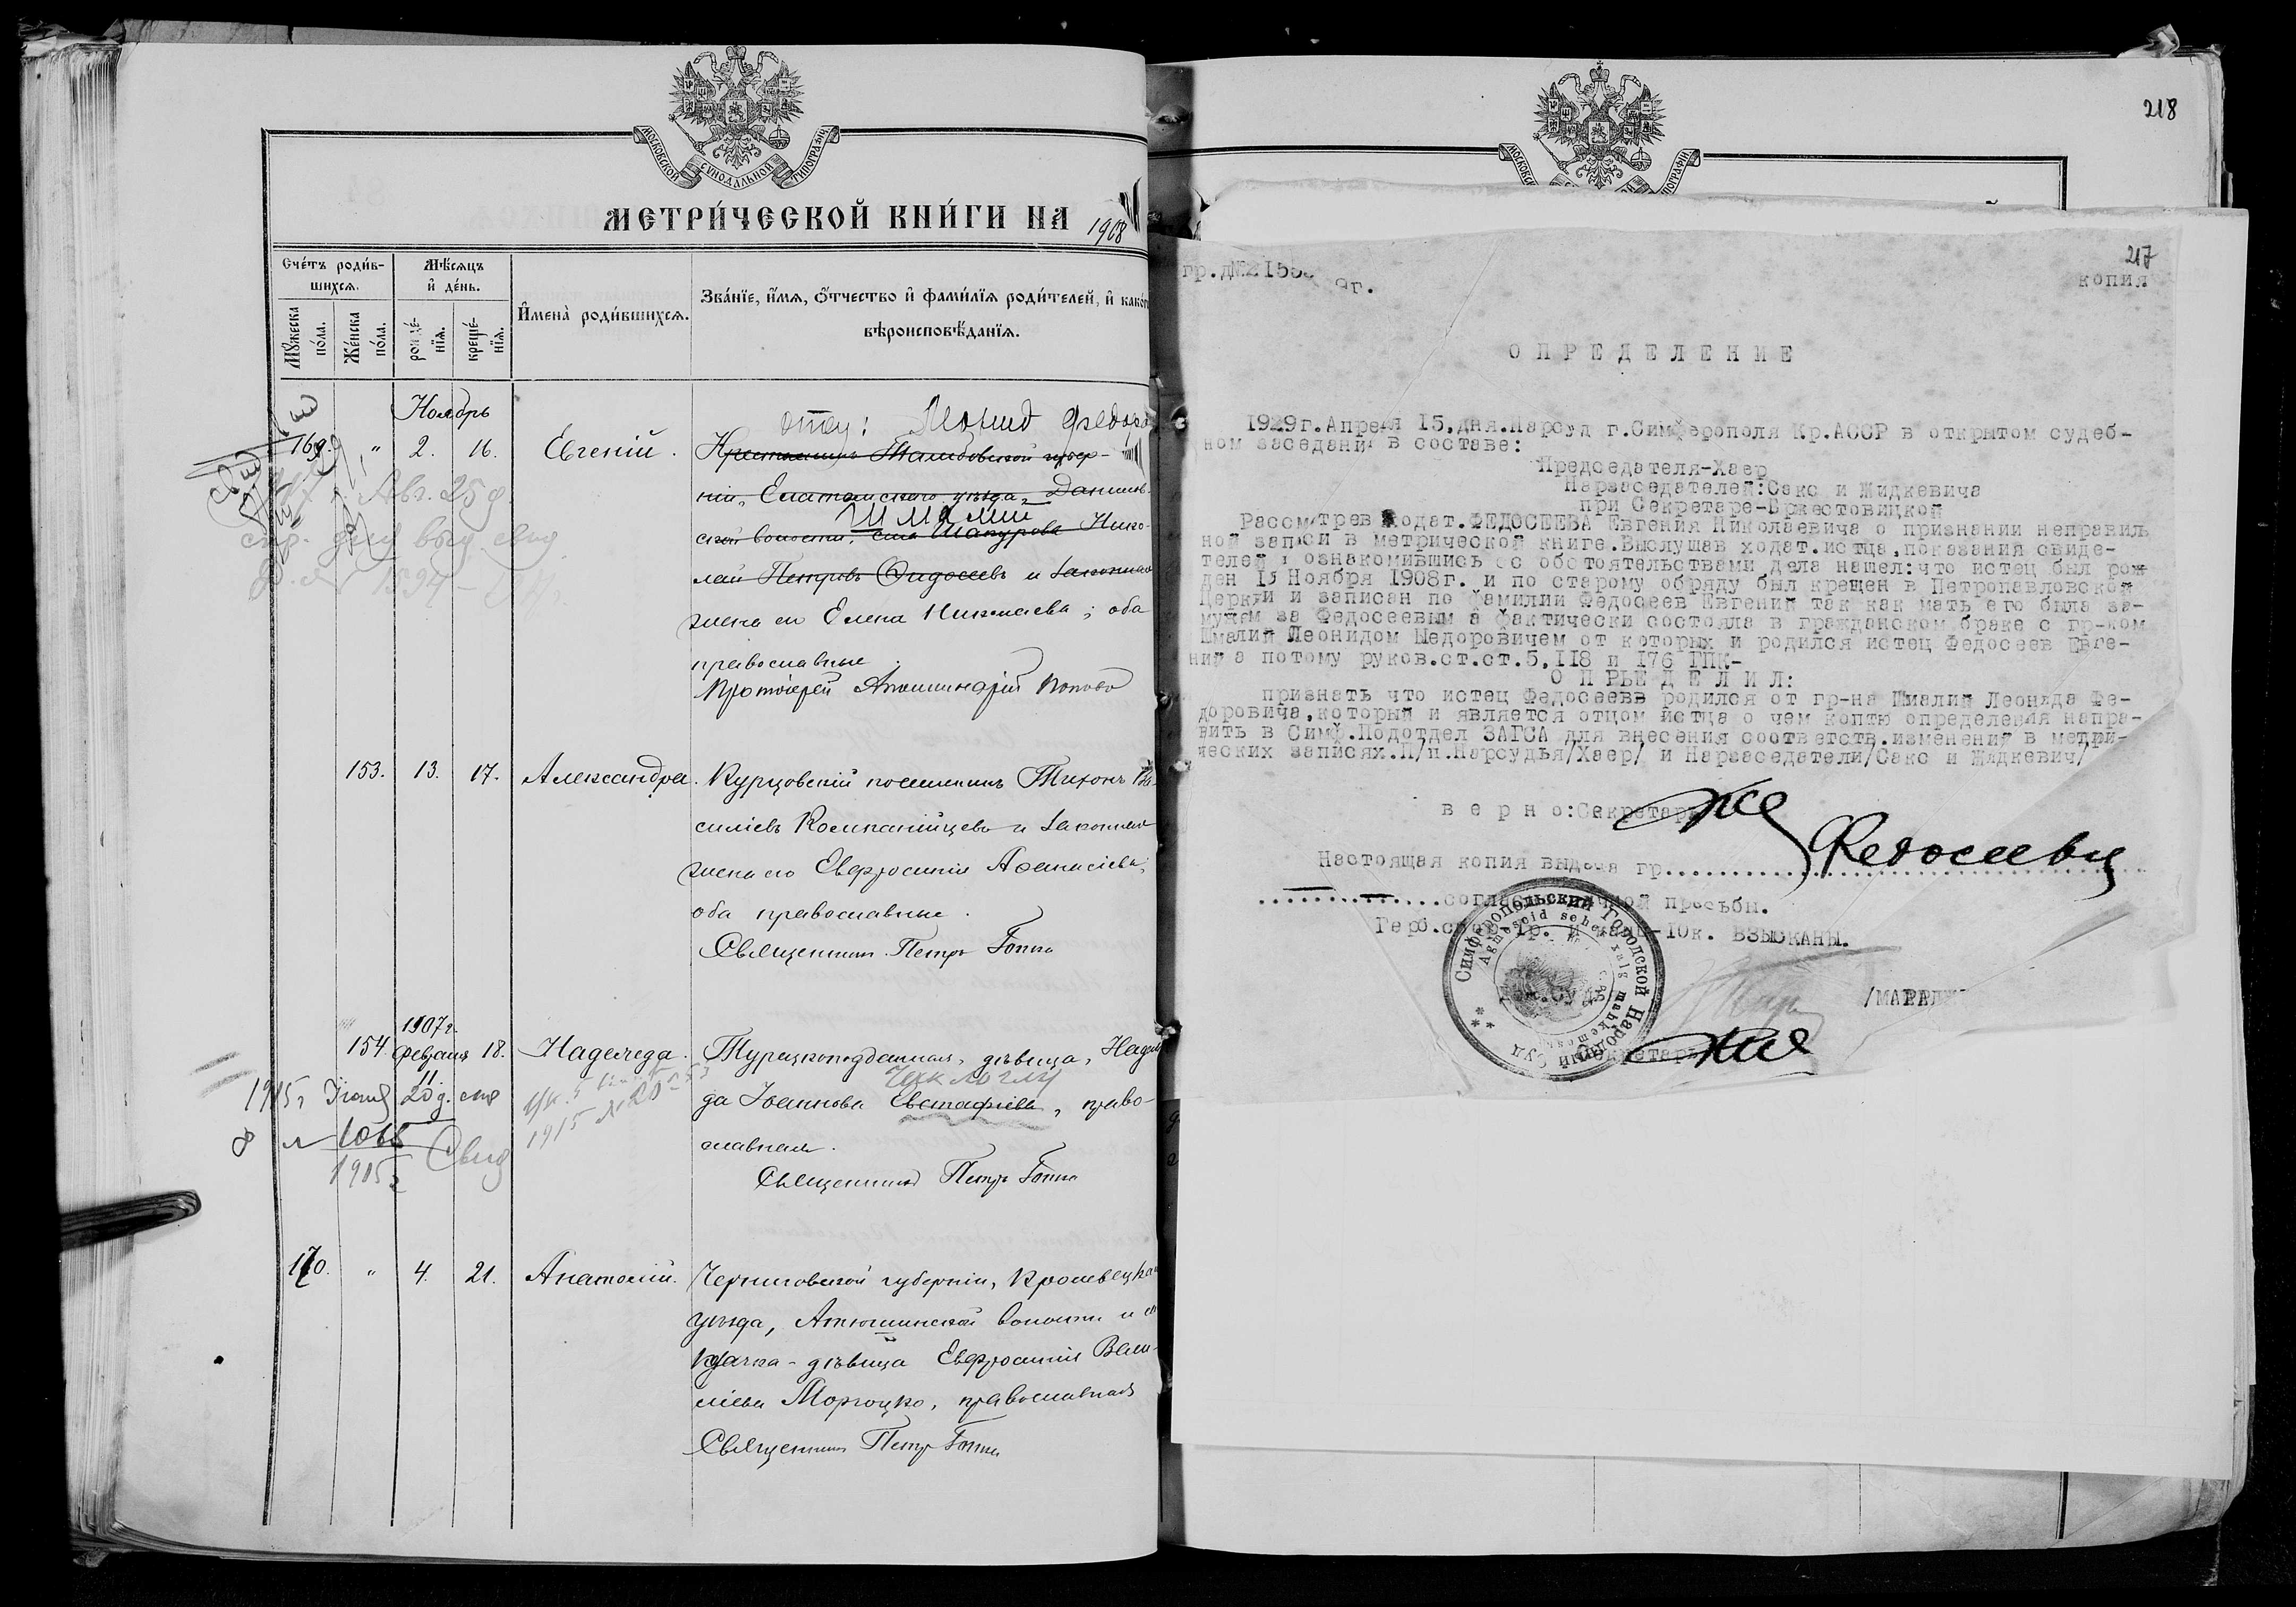 МОСКОВСКОЙ СѴНОДАЛЬНОЙ ТИПОГРАФІИ
МЕТРИ́ЧЕСКОЙ КНИ́ГИ НА 1908
Сче́тъ роди́в-
шихсѧ.
Мѣ́сѧцъ
и҆ де́нь.
Мꙋ́жеска
по́ла.
Же́нска
по́ла.
рожде́-
нїѧ.
креще́-
нїѧ.
И҆мена̀ роди́вшихсѧ.
Зва́нїе, и҆́мѧ, ѻ҆́тчество и҆ фами́лїѧ роди́телей, и҆ како́г
вѣроисповѣ́данїѧ.
Ноябрь
отец: Леонид Федоро
169. " 2. 16. Евгеній. Крестьянинъ Тамбовской губер-
ніи, Елатомскаго уѣзда,
Шмалий
ской волости, села Нико-
лай Петровъ Ѳидосеевъ и законная
жена его Елена Николаева; оба
православные.
Протоіерей Поповъ
153. 13. 17. Александра. Курцовскій поселянинъ Тихонъ Ва-
силіевъ Компанійцевъ и законная
жена его Евфросинія Аѳанасіева,
оба православные.
Священникъ Петръ
154. 1907 г. Февраля 11 18. Надежда. Турецкоподданная, дѣвица, Надеж
да Іоаннова Евстафіева, право-
славная.
Священникъ Петръ
1915 г. Іюня 20 д.
1065
1915 г. Свид
170. " 4. 21. Анатолій. Черниговской губерніи, Кролевецкаго
уѣзда, Атюшинской волости и
казачка-дѣвица Евфросинія Васи-
ліева Моргоцко, православная
Священникъ Петръ
218
217
копия
гр.д№2155
9г.
ОПРЕДЕЛЕНИЕ
1929г.Апреля 15.дня.Нарсуд г.Симферополя Кр.АССР в открытом судеб-
ном заседани в составе:
Председателя-Хаер
Нарзаседателей:Сакс и Жидкевича
при Секретаре-Бржестовицкой
Рассмотрев ходат.ФЕДОСЕЕВА Евгения Николаевича о признании неправиль
ной записи в метрической книге.Выслушав ходат.истца,показания свиде-
телей и ознакомившись со обстоятельствами дела нашел:что истец был рож
ден 15 Ноября 1908г. и по старому обряду был крещен в Петропавловской
Церкви и записан по фамилии Федосеев Евгений так как мать его была за-
мужем за Федосеевым а фактически состояла в гражданском браке с гр-ном
Шмалий Леонидом Медоровичем от которых и родился истец Федосеев Евге-
ний а потому руков.ст.ст.5,118 и 176 ГПК-
ОПРЬЕДЕЛИЛ:
признать что истец Федосеевв родился от гр-на Шмалий Леонида Фе-
доровича,который и является отцом истца о чем коптю определения напра-
вить в Симф.Подотдел ЗАГСА для внесения соответств.изменения в метри-
ческих записях.П/п.Нарсудья/Хаер/ и Нарзаседатели/Сакс и Жидкевич/
верно:Секретарь
Настоящая копия выдана гр. Федосееву
согласно личной просьбы.
Герб.сбор 1р. и канц-10к. ВЗЫСКАНЫ.
Симферопольский Городской Народный Суд
Нар.Суд
Секретарь